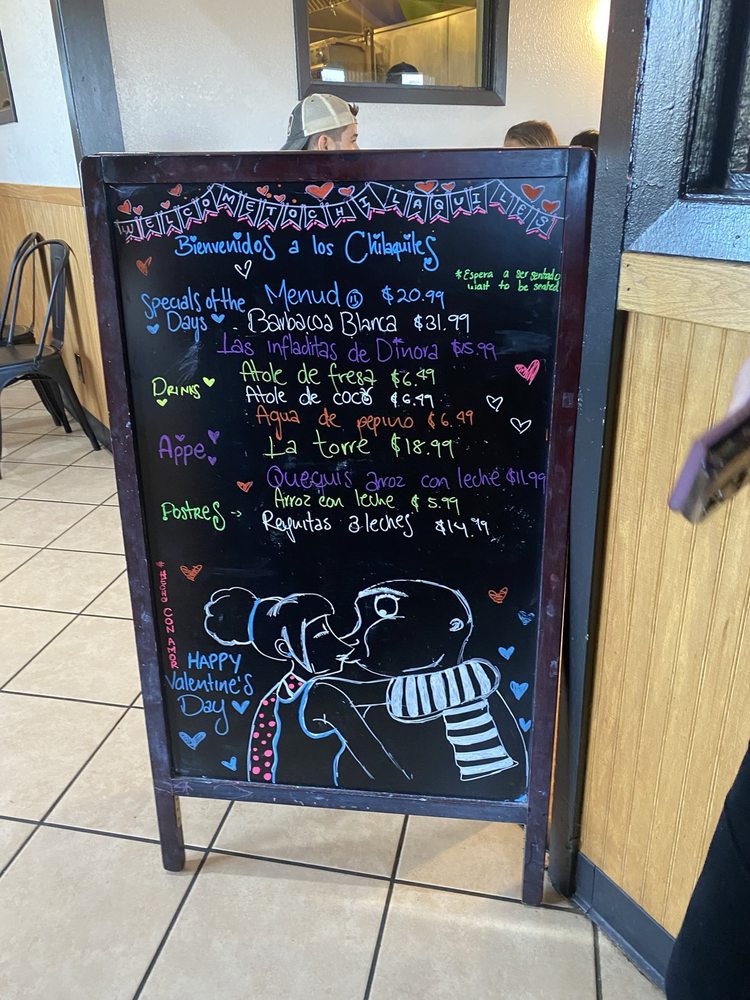 WELCOME TO CHILAQUILES
Bienvenidos a los Chilaquiles
*Espera a ser sentado
wait to be seated
Specials of the Days
Menudo $20.99
Barbacoa Blanca $31.99
Las infladitas de Dinora $15.99
Drinks
Atole de fresa $6.49
Atole de coco $6.49
Agua de pepino $6.49
Appe
La torre $18.99
Quequis arroz con leche $11.99
Postres →
Arroz con leche $5.99
3 leches $14.99
#HECHO CON AMOR
HAPPY
Valentine's
Day